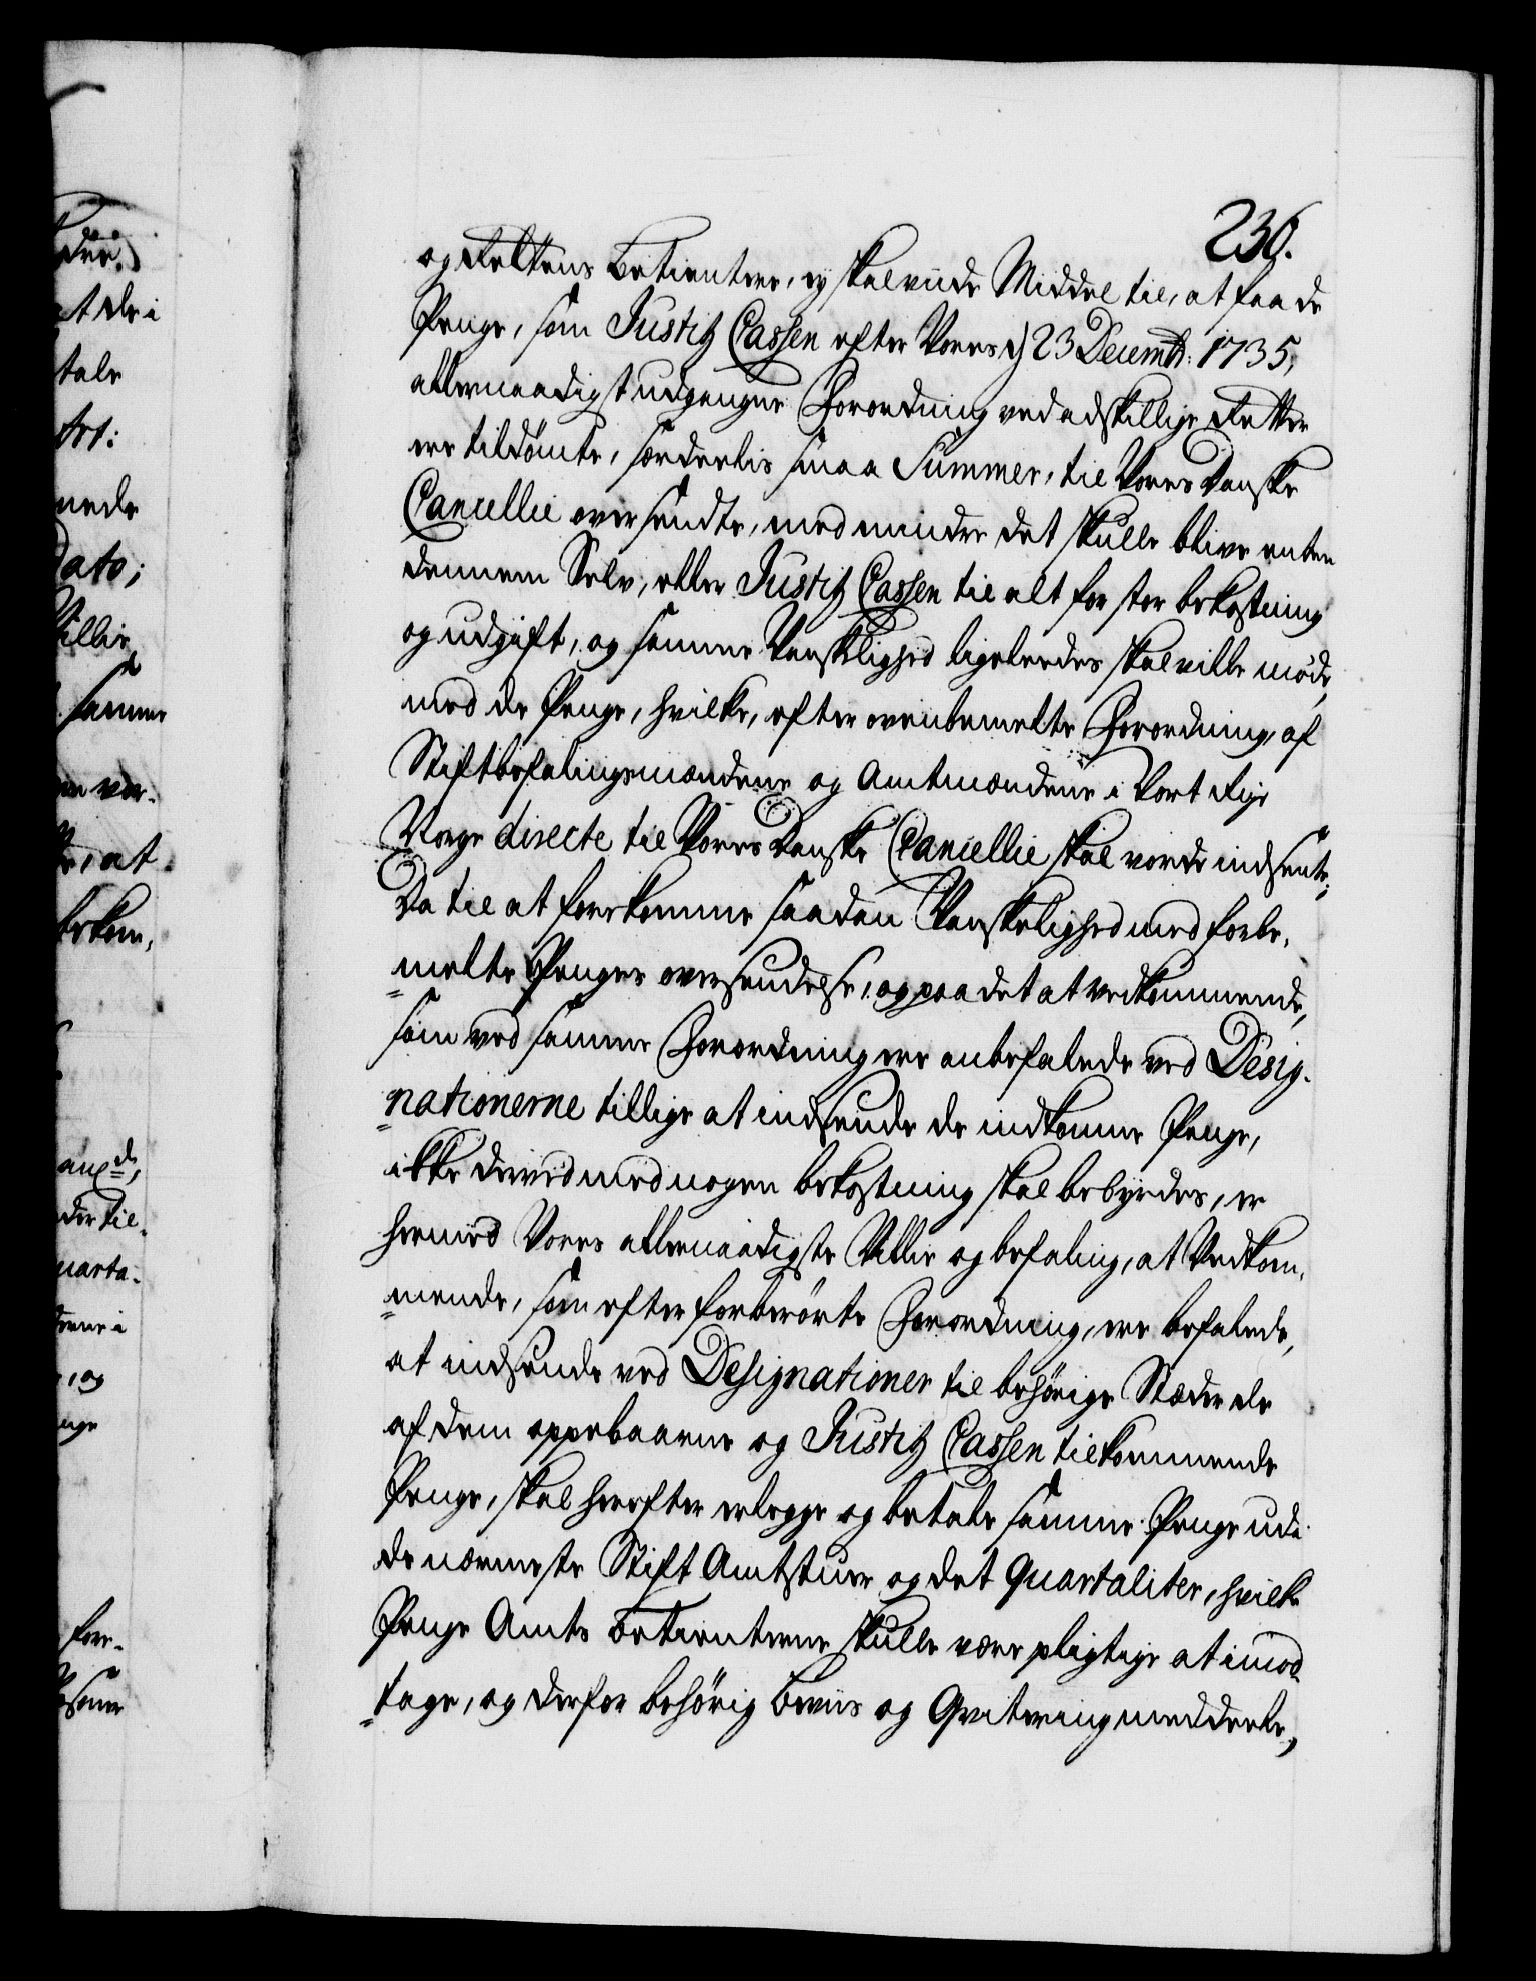 236.
og Rettens Betientere, ey skal viide Middel til, at faa de
Penge, som Justitz Cassen efter Vores d 23 Decembr: 1735,
allernaadigst udgangne Forordning ved adskillige Retter
ere tildömte, særdeelis smaa Summer, til Vores Danske
Cancellie oversendte, med mindre det skulle blive enten
dennem Selv, eller Justitz Cassen til alt for stor bekostning
og udgift, og samme Vanskelighed ligeleedes skal ville möde,
med de Penge, hvilke, efter ovenbemelte Forordning, af
Stiftbefalingsmændene og Amtmændene i Vort Rige
Norge directe til Vores Danske Cancellie skal vorde indsent;
Da til at forekomme saadan Vanskelighed med forbe,
melte Penges oversendelse, og paa det at vedkommende,
som ved samme Forordning ere anbefalede ved Desig-
nationerne tillige at indsende de indkomne Penge,
ikke derved med nogen bekostning skal bebyrdes, er
hermed Vores allernaadigste Villie og befaling, at Vedkom,
mende, som efter forberörte Forordning, ere befalede,
at indsende ved Designationer til behörige Stæder de
af dem oppebaarne og Justitz Cassen tilkommende
Penge, skal herefter erlegge og betale samme Penge udi
de nærmeste Stift Amtstuer og det quartaliter, hvilke
Penge Amts Betienterne skulle være pligtige at imod,
tage, og derfor behörig beviis og Qvitering meddeele,